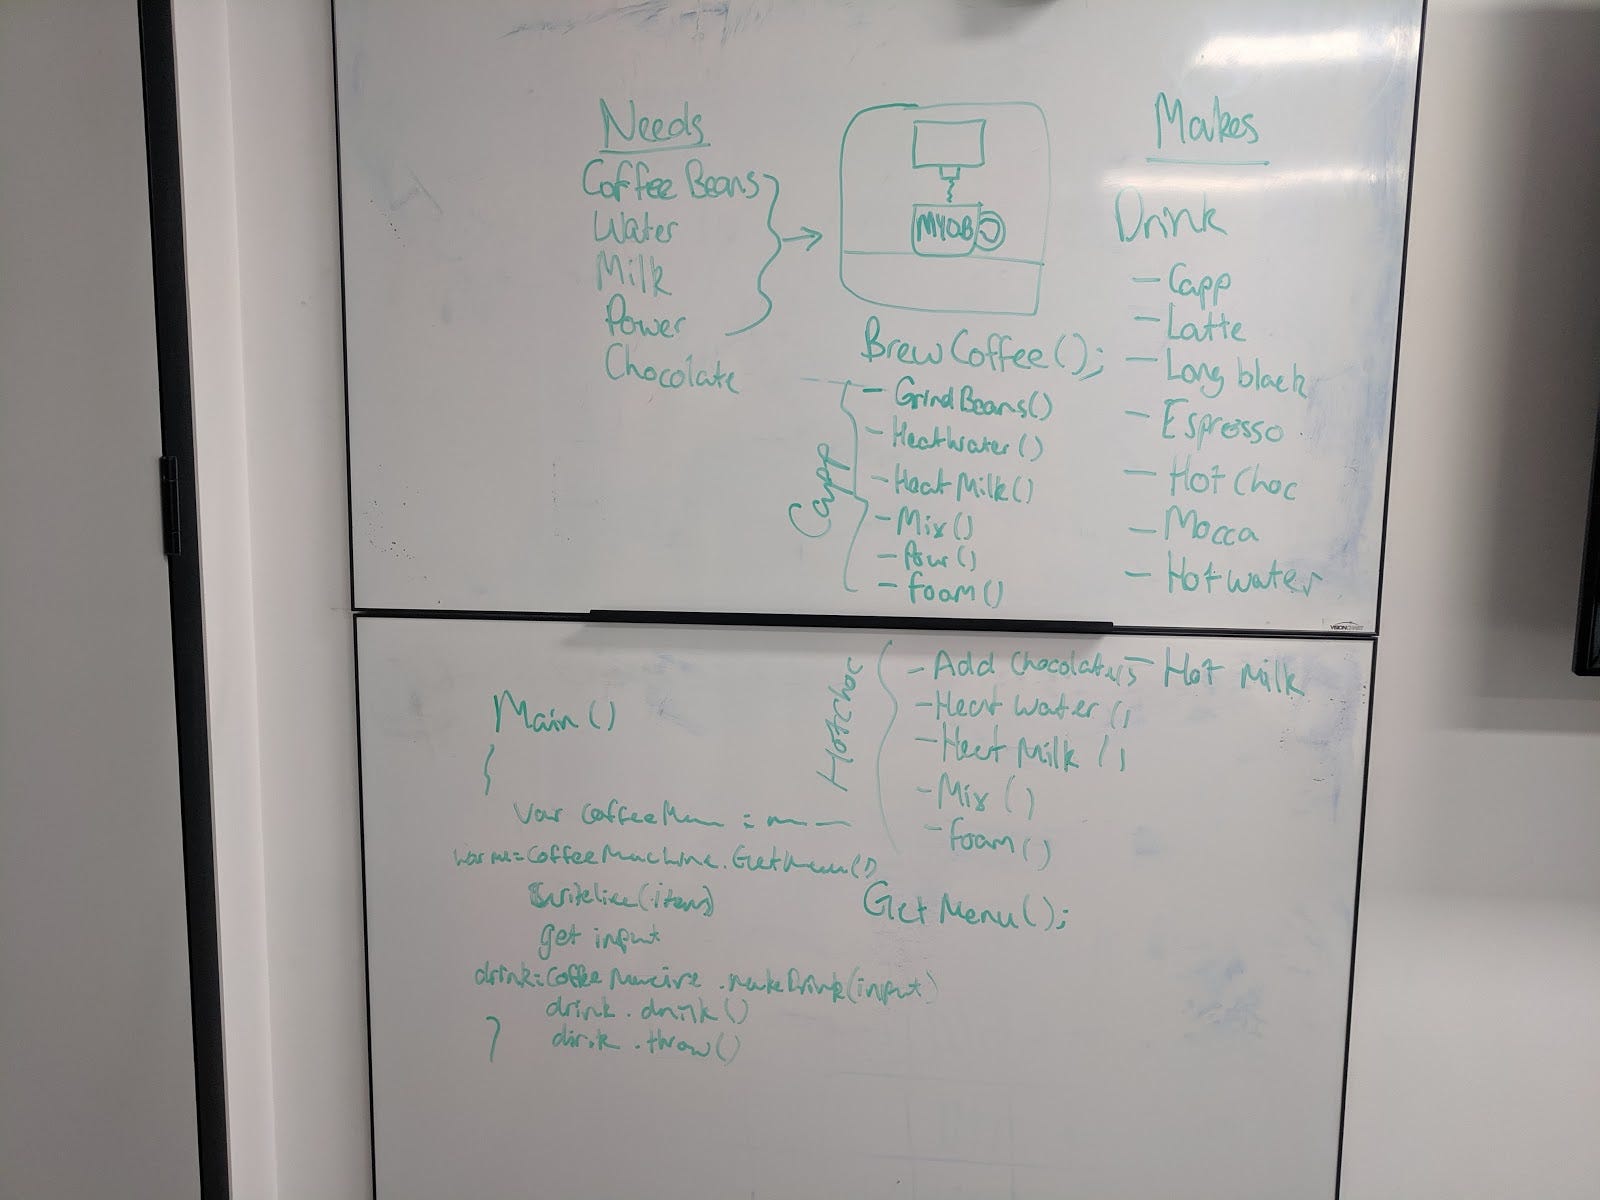 Needs
Coffee Beans
Water
Milk
Power
Chocolate
MYOB
BrewCoffee();
Capp
- GrindBeans()
- Heatwater()
- Heat Milk()
- Mix()
- Pour()
- foam()
Makes
Drink
- Capp
- Latte
- Long black
- Espresso
- Hot Choc
- Mocca
- Hot water
- Hot Milk
VISIONCHART
Hotchoc
- Add Chocolate
- Heat water()
- Heat Milk()
- Mix()
- foam()
GetMenu();
Main()
{
var coffee =
= CoffeeMachine.GetMenu()
writeline(item)
get input
drink = Coffee .makeDrink(input)
drink.drink()
drink.throw()
}